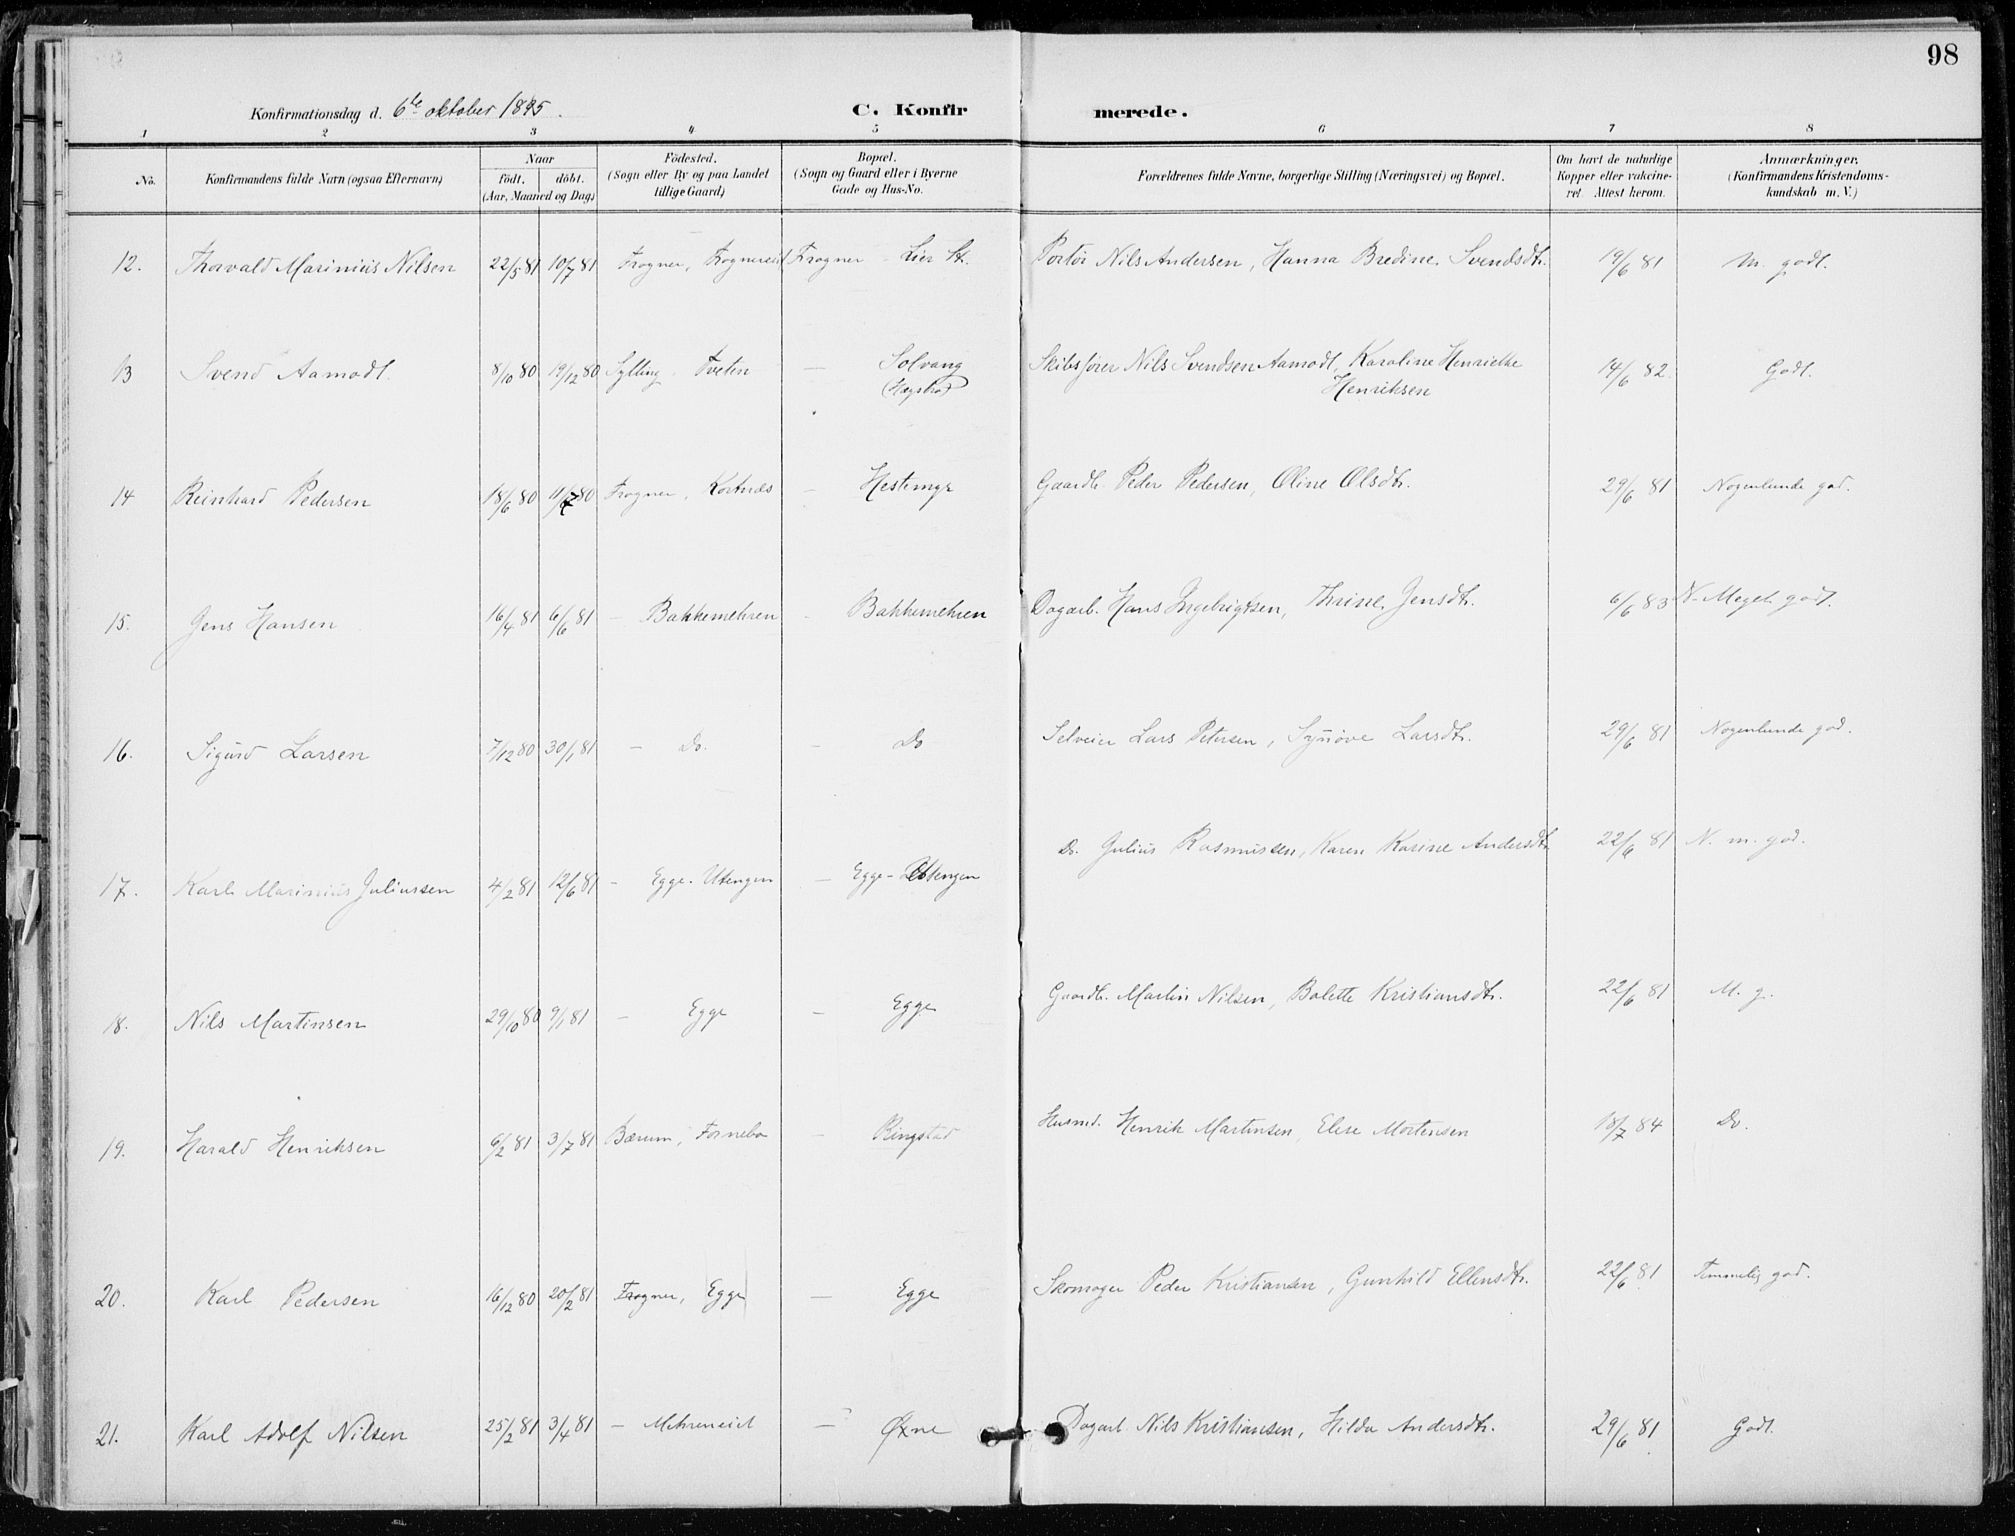 98
Konfirmationsdag d. 6te oktober 1895.
C. Konfirmerede.
1 2 3 4 5 6 7 8
No.
Konfirmandens fulde Navn (ogsaa Efternavn)
Naar
født. døbt.
(Aar, Maaned og Dag)
Födested.
(Sogn eller By og paa Landet
tillige Gaard)
Bopæl.
(Sogn og Gaard eller i Byerne
Gade og Hus-No.
Forældrenes fulde Navne, borgerlige Stilling (Næringsvei) og Bopæl.
Om havt de naturlige
Kopper eller vakcine-
ret. Attest herom.
Anmærkninger.
(Konfirmandens Kristendoms-
kundskab m. V.)
12. Thorvald Marinius Nilsen 22/5 81 10/7 81 Frogner, Frognereiet Frogner - Lier St. Portør Nils Andersen, Hanna Bredine Svendsdtr. 19/6 81 M. godt.
13 Svend Aamodt. 8/10 80 19/12 80 Sylling. Tveten — Solvang Skibsfører Nils Svendsen Aamodt, Karoline Henriette 14/6 82. Godt.
Henriksen
14 Reinhard Pedersen 18/6 80 11/7 80 Frogner, Kortnæs — Hestemyr Gaardb. Peder Pedersen, Oline Olsdtr. 29/6 81 Nogenlunde god.
15. Jens Hansen 16/4 81 6/6 81 — Bakkemehren — Bakkemehren Dagarb. Hans Ingebrigtsen, Thrine Jensdtr. 6/6 83 N. Meget godt.
16. Sigurd Larsen 7/12 80 30/1 81 — Do. — Do Selveier Lars Petersen, Synøve Larsdtr. 29/6 81 Nogenlunde god.
17. Karl Marinius Juliussen 4/2 81 12/6 81 — Egge-Utengen — Egge-Utengen Do. Julius Rasmussen, Karen Karine Andersdtr. 22/6 81 N. m. god.
18. Nils Martinsen 29/10 80 9/1 81 — Egge — Egge Gaardb. Martin Nilsen, Bolette Kristiansdtr. 22/6 81 M. g.
19. Harald Henriksen 6/2 81 3/7 81 Bærum, Fornebo — Ringstad Husmd. Henrik Martinsen, Elise Mortensen 18/7 84 Do.
20. Karl Pedersen 16/12 80 20/2 81 Frogner, Egge — Egge Skomager Peder Kristiansen, Gunhild Ellensdtr. 22/6 81 Temmelig god.
21. Karl Adolf Nilsen 25/2 81 3/4 81 — Mehreneiet — Øxne Dagarb. Nils Kristiansen, Hilda Andersdtr. 29/6 81 Godt.